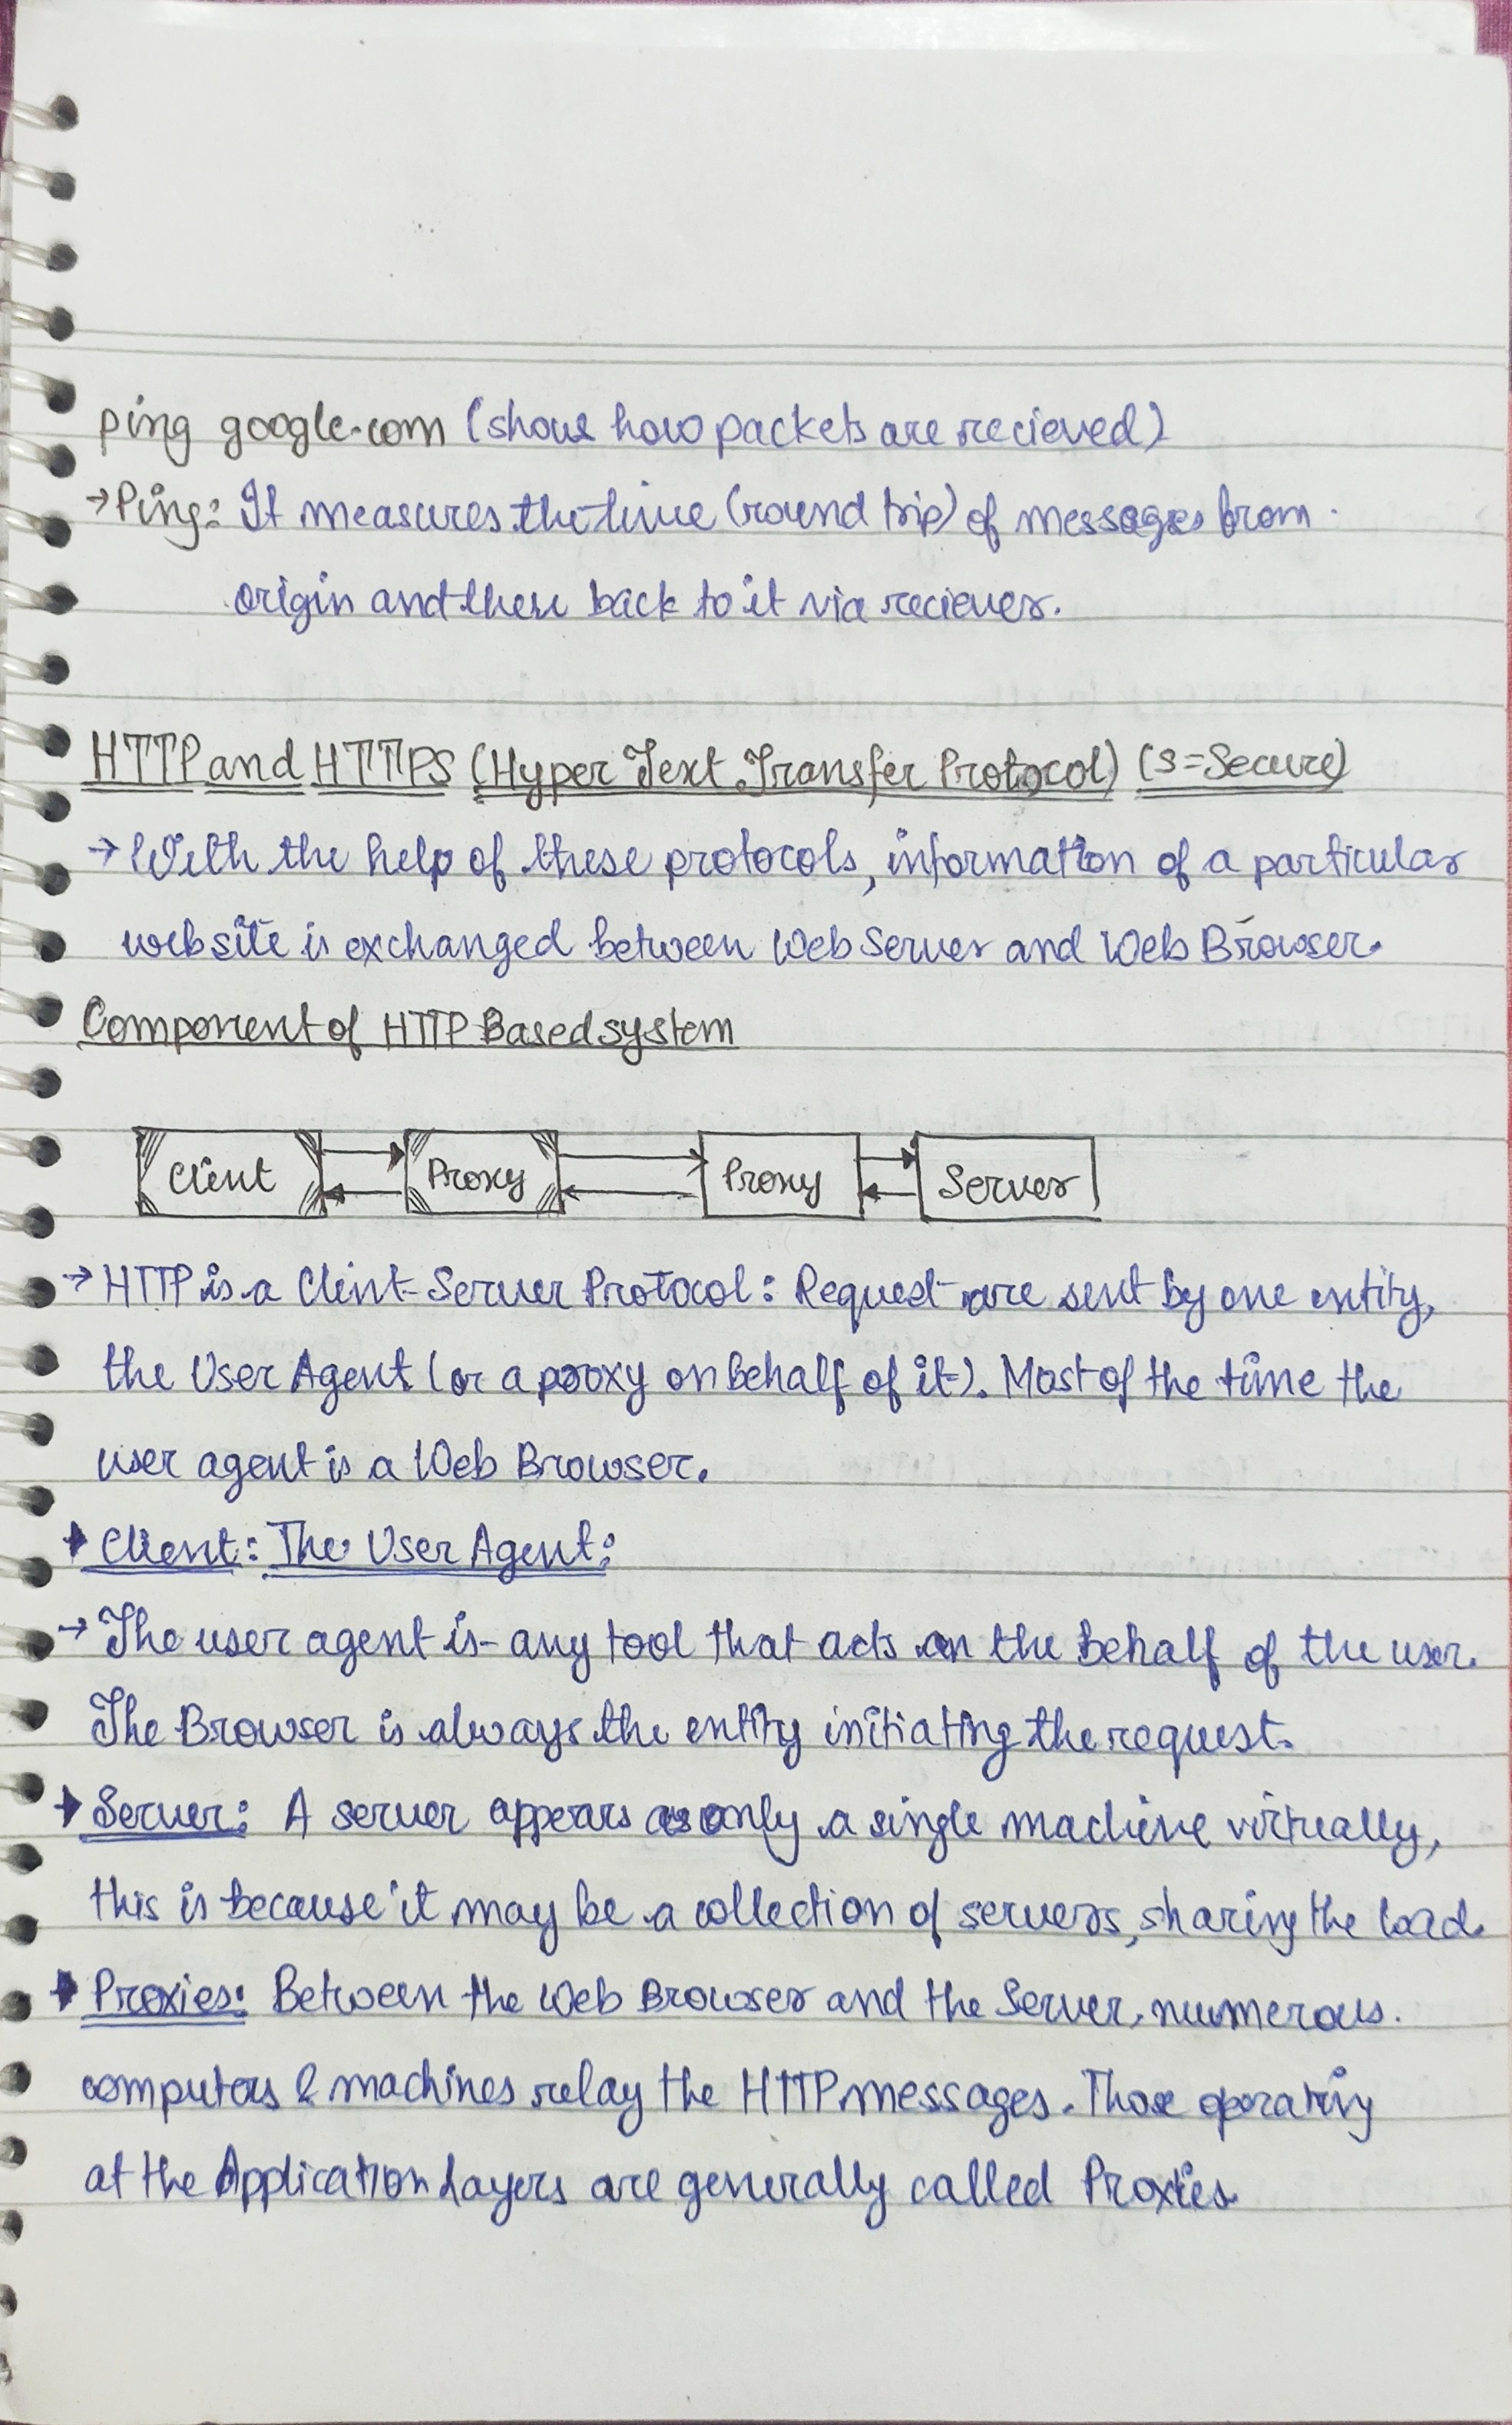 ping google.com (shows how packets are recieved)
→ Ping: It measures the time (round trip) of messages from
origin and then back to it via reciever.
HTTP and HTTPS (Hyper Text Transfer Protocol) (S=Secure)
→ With the help of these protocols, information of a particular
website is exchanged between Web Server and Web Browser.
Component of HTTP Based system
Client Proxy Proxy Server
→ HTTP is a Client-Server Protocol: Request are sent by one entity,
the User Agent (or a proxy on behalf of it). Most of the time the
user agent is a Web Browser.
→ Client: The User Agent:
→ The user agent is any tool that acts on the behalf of the user.
The Browser is always the entity initiating the request.
→ Server: A server appears as only a single machine virtually,
this is because it may be a collection of servers, sharing the load.
→ Proxies: Between the Web Browser and the Server, numerous
computers & machines relay the HTTP messages. Those operating
at the Application Layers are generally called Proxies